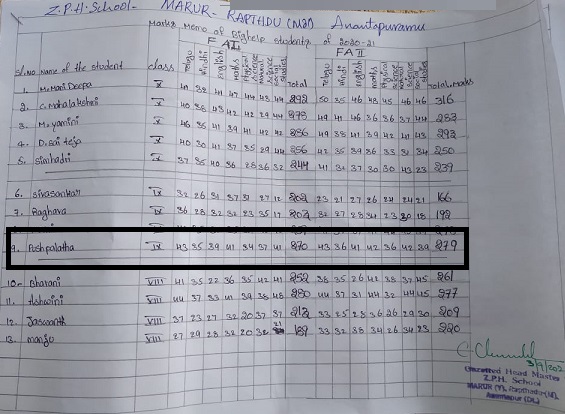 Z.P.H. School - MARUR - RAPTHDU (Mdl) Anantapuramu
Marks Memo of Eighest students of 2020-21
FA I FA II
Sl.No Name of the student class Telugu Hindi English maths physical science natural science social studies total Telugu Hindi English maths physical science natural science social studies total marks
1. M. Mari Deepa X 292 50 35 46 48 45 46 46 316
2. C. Mahalakshmi X 40 38 43 42 42 29 44 278 49 41 46 36 36 37 44 283
3. M. yamini X 46 35 41 39 41 42 42 286 49 38 41 39 42 41 43 293
4. D. sai teja X 40 30 41 37 35 29 44 256 42 35 39 36 33 31 34 250
5. Simhadri X 37 35 40 36 28 36 32 244 41 34 37 30 30 43 23 239
6. Sivasankar IX 32 26 31 37 31 27 12 202 23 21 27 26 24 24 21 166
7. Raghava IX 36 28 32 32 23 35 17 203 32 27 28 34 23 30 18 192
9. Pushpalatha IX 43 35 39 41 34 37 41 270 43 36 41 42 36 42 39 279
10. Bharani VIII 41 35 22 36 35 42 41 252 38 35 26 42 38 37 45 261
11. Ashwini VIII 44 37 33 41 39 38 48 280 44 37 31 44 32 44 45 277
12. Jaswanth VIII 37 23 27 32 20 37 37 213 33 25 28 36 26 29 30 209
13. manju VIII 27 29 28 32 20 32 21 189 33 32 38 34 26 34 23 220
Gazetted Head Master
Z.P.H. School
MARUR (V), Rapthadu (M),
Anantapur (Dt.)